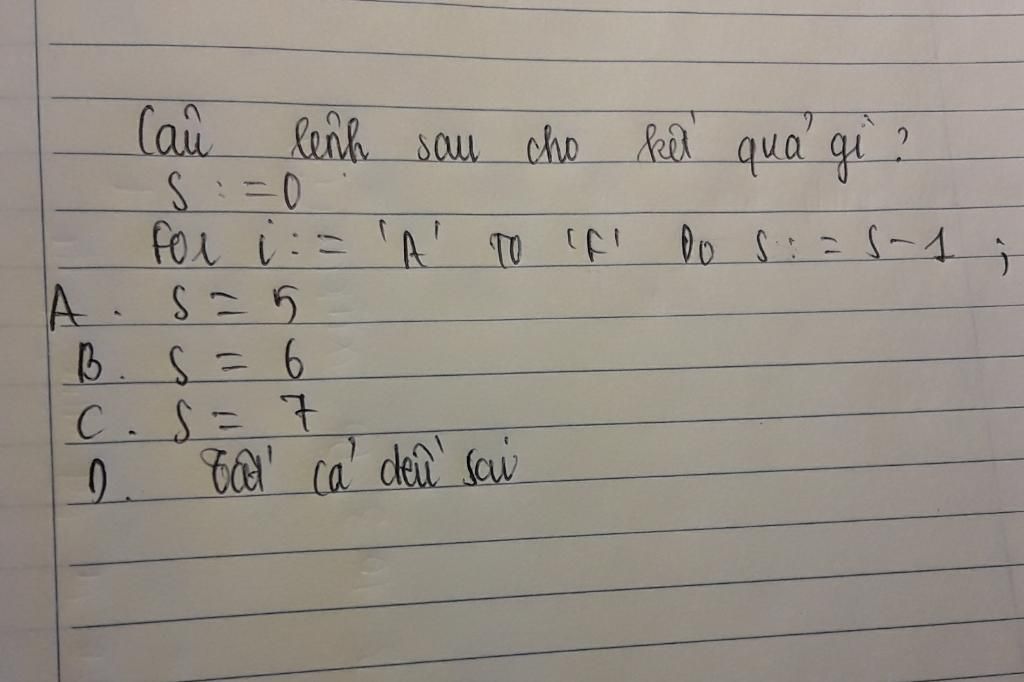 Câu lệnh sau cho kết quả gì?
S := 0
For i := 'A' TO 'F' DO S := S - 1 ;
A. S = 5
B. S = 6
C. S = 7
D. Tất cả đều sai